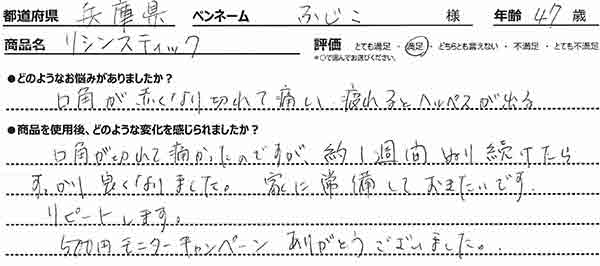 都道府県 兵庫県 ペンネーム ふじこ 様 年齢 47 歳
商品名 リシンスティック 評価 とても満足 ・ 満足 ・ どちらとも言えない ・ 不満足 ・ とても不満足
*○で囲んでお選びください。
●どのようなお悩みがありましたか？
口角が赤くなり切れて痛い 疲れるとヘルペスが出る
●商品を使用後、どのような変化を感じられましたか？
口角が切れて痛かったのですが 約1週間ぬり続けたら
すっかり良くなりました。 家に常備しておきたいです。
リピートします。
500円モニターキャンペーン ありがとうございました。